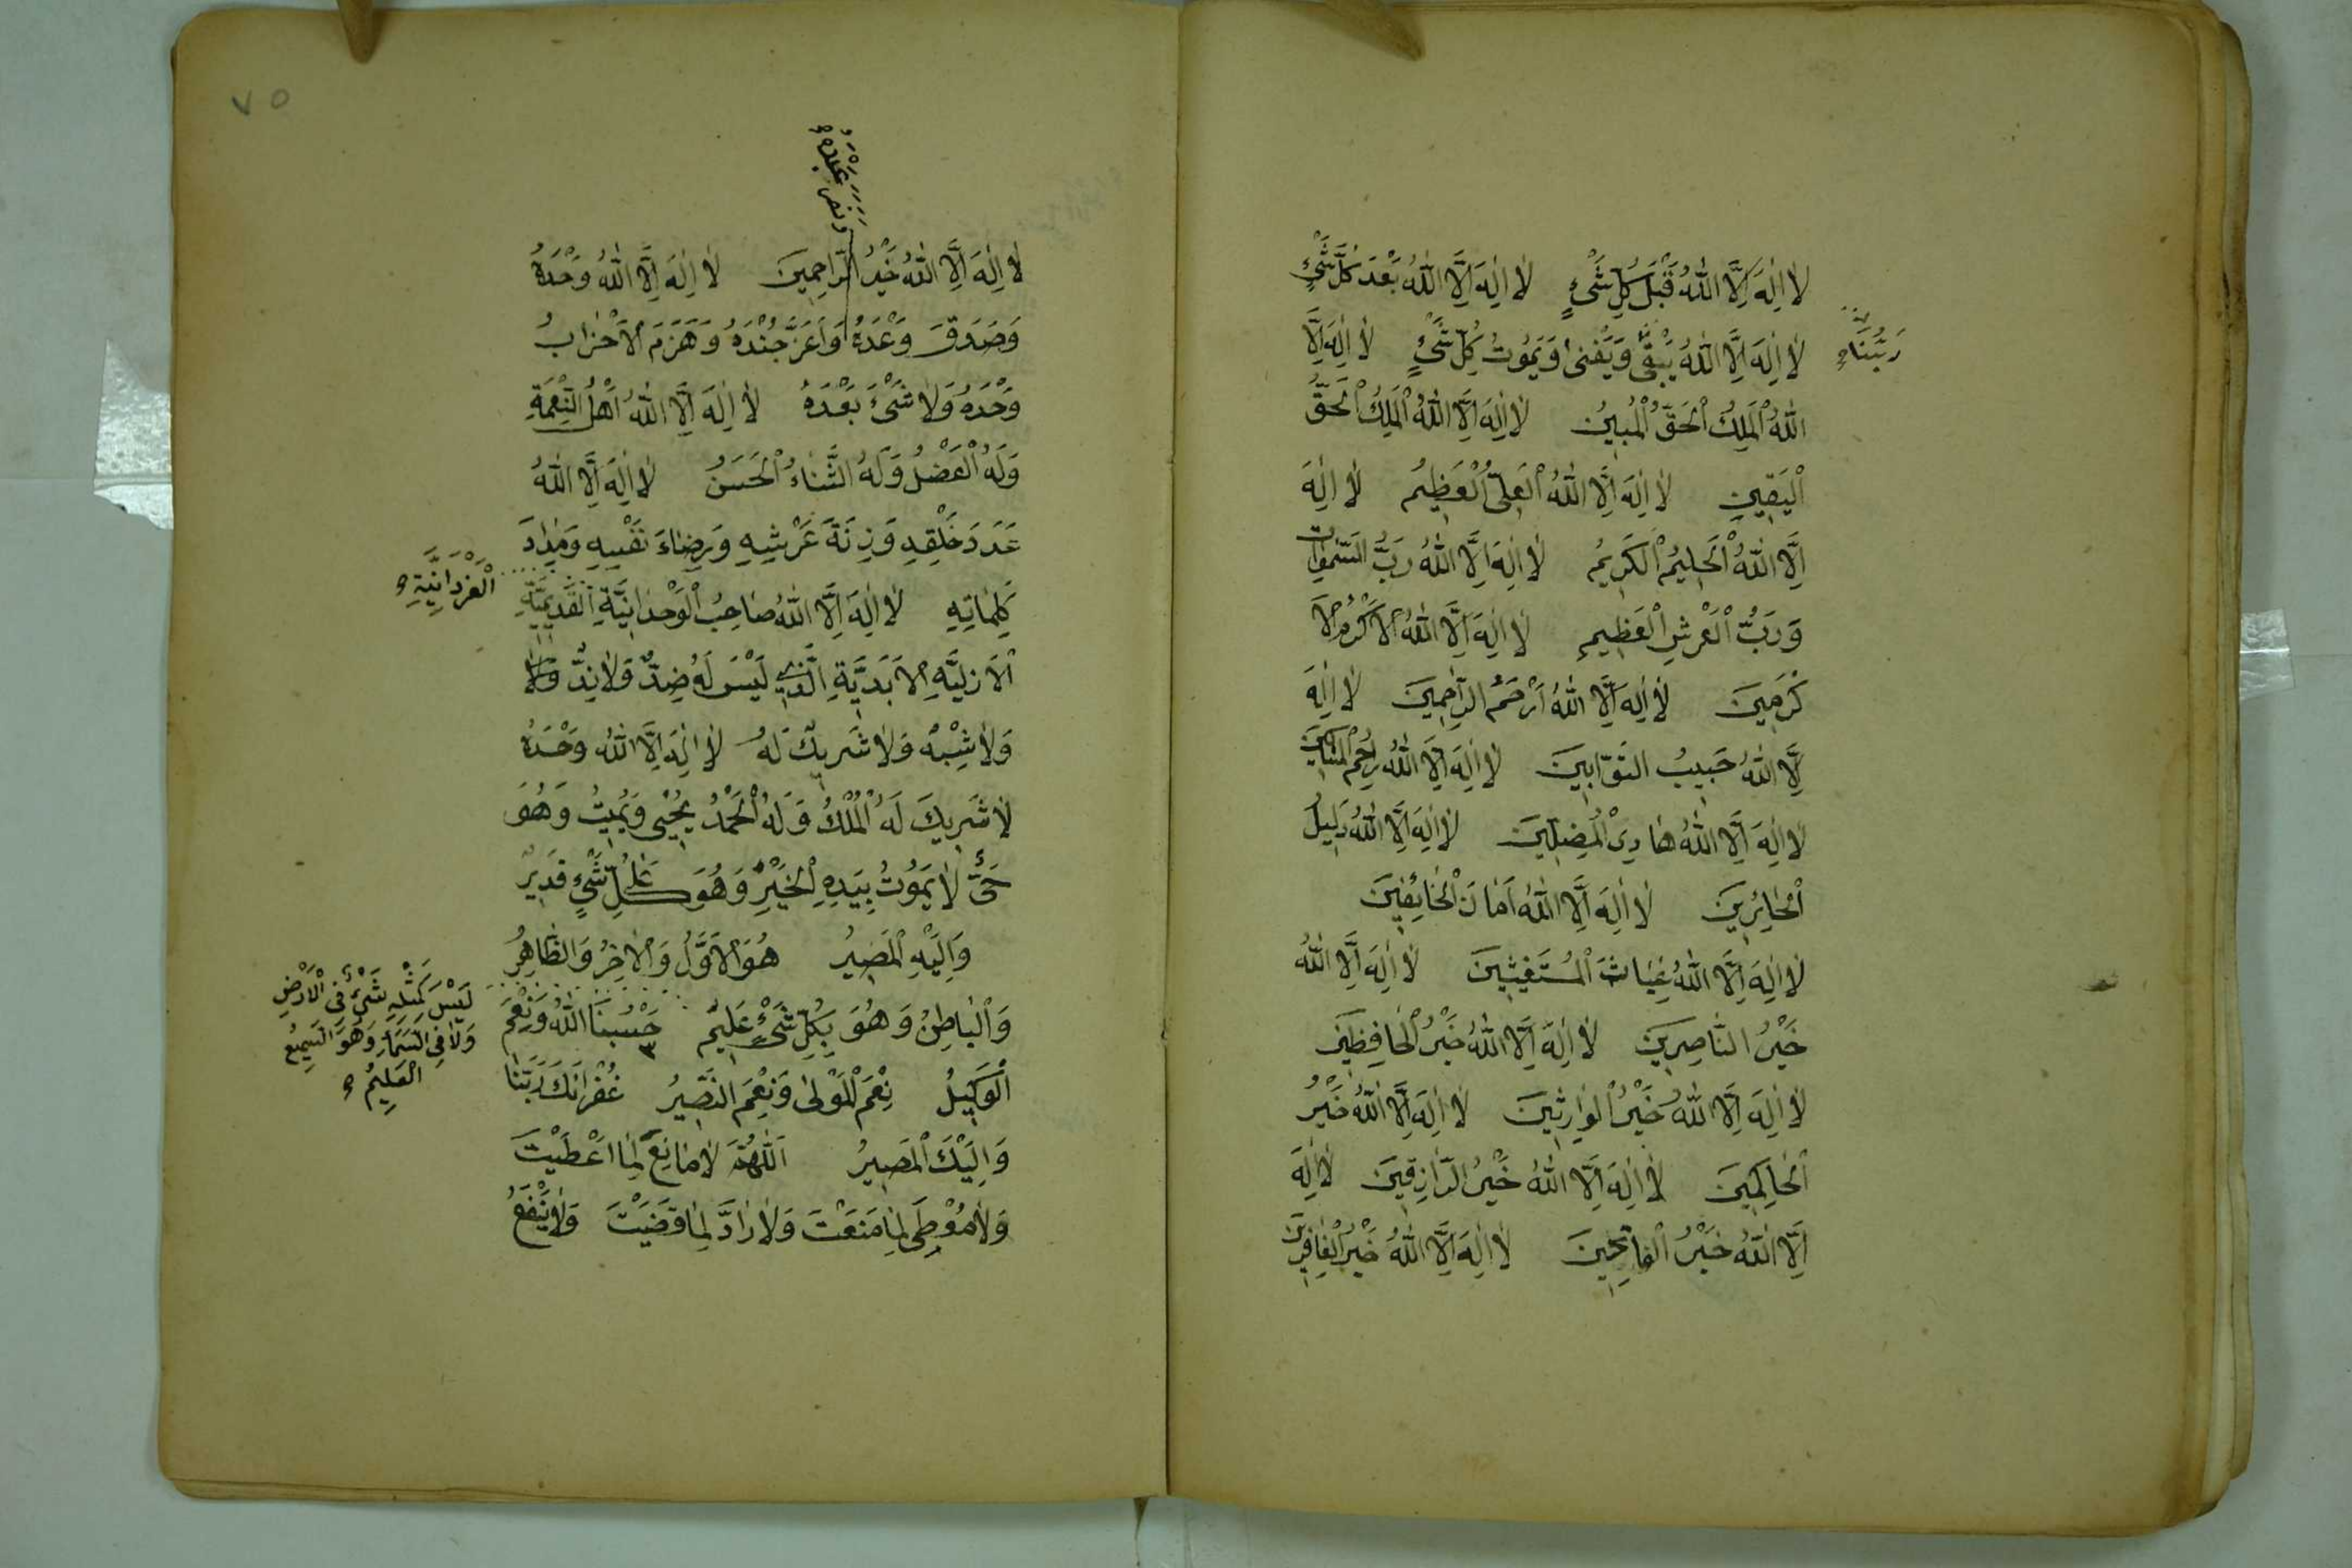 لَا اِلٰهَ اِلَّا اللّٰهُ قَبْلَ كُلِّ شَىْءٍ لَا اِلٰهَ اِلَّا اللّٰهُ بَعْدَ كُلِّ شَىْءٍ
رَبُّنَا
لَا اِلٰهَ اِلَّا اللّٰهُ يَبْقٰى وَيَفْنٰى وَيَمُوتُ كُلُّ شَىْءٍ لَا اِلٰهَ اِلَّا
اللّٰهُ الْمَلِكُ الْحَقُّ الْمُبِينُ لَا اِلٰهَ اِلَّا اللّٰهُ الْمَلِكُ الْحَقُّ
الْيَقِينِ لَا اِلٰهَ اِلَّا اللّٰهُ الْعَلِىُّ الْعَظِيمُ لَا اِلٰهَ
اِلَّا اللّٰهُ الْحَلِيمُ الْكَرِيمُ لَا اِلٰهَ اِلَّا اللّٰهُ رَبُّ السَّمٰوَاتِ
وَرَبُّ الْعَرْشِ الْعَظِيمِ لَا اِلٰهَ اِلَّا اللّٰهُ الْاَكْرَمُ الْاَ
كْرَمِينَ لَا اِلٰهَ اِلَّا اللّٰهُ اَرْحَمُ الرَّاحِمِينَ لَا اِلٰهَ
اِلَّا اللّٰهُ حَبِيبُ التَّوَّابِينَ لَا اِلٰهَ اِلَّا اللّٰهُ رَاحِمُ الْمَسَاكِينَ
لَا اِلٰهَ اِلَّا اللّٰهُ هَادِى الْمُضِلِّينَ لَا اِلٰهَ اِلَّا اللّٰهُ دَلِيلُ
الْحَائِرِينَ لَا اِلٰهَ اِلَّا اللّٰهُ اَمَانُ الْخَائِفِينَ
لَا اِلٰهَ اِلَّا اللّٰهُ غِيَاثُ الْمُسْتَغِيثِينَ لَا اِلٰهَ اِلَّا اللّٰهُ
خَيْرُ النَّاصِرِينَ لَا اِلٰهَ اِلَّا اللّٰهُ خَيْرُ الْحَافِظِينَ
لَا اِلٰهَ اِلَّا اللّٰهُ خَيْرُ الْوَارِثِينَ لَا اِلٰهَ اِلَّا اللّٰهُ خَيْرُ
الْحَاكِمِينَ لَا اِلٰهَ اِلَّا اللّٰهُ خَيْرُ الرَّازِقِينَ لَا اِلٰهَ
اِلَّا اللّٰهُ خَيْرُ الْفَاتِحِينَ لَا اِلٰهَ اِلَّا اللّٰهُ خَيْرُ الْغَافِرِينَ
٧٥
وَنَصَرَ عَبْدَهُ
لَا اِلٰهَ اِلَّا اللّٰهُ خَيْرُ الرَّاحِمِينَ لَا اِلٰهَ اِلَّا اللّٰهُ وَحْدَهُ
وَصَدَقَ وَعْدَهُ وَاَعَزَّ جُنْدَهُ وَهَزَمَ الْاَحْزَابَ
وَحْدَهُ وَلَا شَىْءَ بَعْدَهُ لَا اِلٰهَ اِلَّا اللّٰهُ اَهْلُ النِّعْمَةِ
وَلَهُ الْفَضْلُ وَلَهُ الثَّنَاءُ الْحَسَنُ لَا اِلٰهَ اِلَّا اللّٰهُ
عَدَدَ خَلْقِهِ وَزِنَةَ عَرْشِهِ وَرِضَاءَ نَفْسِهِ وَمِدَادَ
الْفَرْدَانِيَّةِ
كَلِمَاتِهِ لَا اِلٰهَ اِلَّا اللّٰهُ صَاحِبُ الْوَحْدَانِيَّةِ الْقَدِيمِيَّةِ
الْاَزَلِيَّةِ الْاَبَدِيَّةِ الَّذِى لَيْسَ لَهُ ضِدٌّ وَلَا نِدٌّ وَلَا
وَلَا شِبْهٌ وَلَا شَرِيكَ لَهُ لَا اِلٰهَ اِلَّا اللّٰهُ وَحْدَهُ
لَا شَرِيكَ لَهُ الْمُلْكُ وَلَهُ الْحَمْدُ يُحْيِى وَيُمِيتُ وَهُوَ
حَىٌّ لَا يَمُوتُ بِيَدِهِ الْخَيْرُ وَهُوَ عَلٰى كُلِّ شَىْءٍ قَدِيرٌ
وَاِلَيْهِ الْمَصِيرُ هُوَ الْاَوَّلُ وَالْاٰخِرُ وَالظَّاهِرُ
لَيْسَ كَمِثْلِهِ شَىْءٌ فِى الْاَرْضِ
وَلَا فِى السَّمَاءِ وَهُوَ السَّمِيعُ
الْعَلِيمُ
وَالْبَاطِنُ وَهُوَ بِكُلِّ شَىْءٍ عَلِيمٌ ٣ حَسْبُنَا اللّٰهُ وَنِعْمَ
الْوَكِيلُ نِعْمَ الْمَوْلٰى وَنِعْمَ النَّصِيرُ غُفْرَانَكَ رَبَّنَا
وَاِلَيْكَ الْمَصِيرُ اَللّٰهُمَّ لَا مَانِعَ لِمَا اَعْطَيْتَ
وَلَا مُعْطِىَ لِمَا مَنَعْتَ وَلَا رَادَّ لِمَا قَضَيْتَ وَلَا يَنْفَعُ